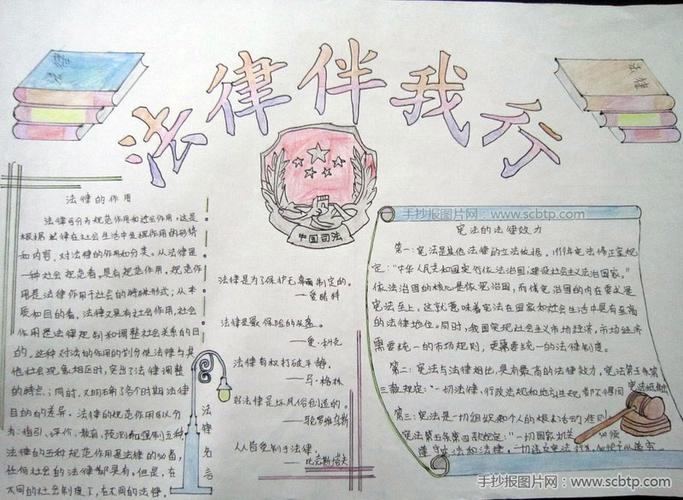 法律伴我行
法律
中国司法
法律的作用
法律可分为规范作用和社会作用,这是
根据法律在社会生活中发挥作用的形式
和内容,对法律的作用的分类。从法律是
一种社会规范看,具有规范作用,规范作
用是法律作用于社会的特殊形式;从本
质和目的看,法律又具有社会作用,社会
作用是法律规制和调整社会关系的目
的。这种对法的作用的划分使法律与其
他社会现象相区别,突出了法律调整
的特点;同时,又明确了各个时期法律
目的的差异。法律的规范作用可以分
为:指引、评价、教育、预测和强制五种
法律的五种规范作用是法律的必备,
任何社会的法律都具有。但是,在
不同的社会制度下,在不同的法律,
法律名言
法律是为了保护无辜而制定的。
——爱略特
法律是最保险的头盔。
——爱·科克
法律有权打破平静。
——马·格林
好法律是坏风俗创造的。
——马克罗维乌斯
人人皆受制于法律。
手抄报图片网·www.scbtp.com
宪法的法律效力
第一:宪法是其他法律的立法依据。1999年宪法修正案规
定:"中华人民共和国实行依法治国,建设社会主义法治国家。"
依法治国的核心是依宪治国,而依宪治国的内在要求是
宪法至上,这就意味着宪法在国家和社会生活中具有至高
的法律地位。同时,我国实现社会主义市场经济,市场经济
需要统一的市场规则,更需要统一的法律制度。
第二:宪法与法律相比,具有最高的法律效力,宪法第五条第
三款规定:"一切法律、行政法规和地方法规都不得同宪法抵触
第三:宪法是一切组织和个人的根本活动准则
宪法第五条第四款规定:"一切国家力
遵守宪法和法律。一切违反宪法
手抄报图片网 www.scbtp.com